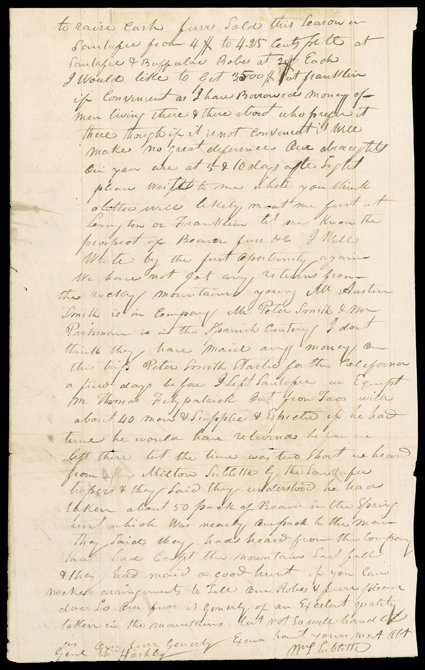 to raise Cash furs Sold this Season in
Santafee from 4 $ to 4.25 Cents at
Santafee & Buffaloe Robes at Each
I Would like to Get 3500 $ at franklin
if Convenient as I have Borrowed money of
men living there & there about who prefer it
there though if it is not Convenient it Will
make no great deference Our draughts
on you are at 5 & 10 days after Sight
please to me where you think
a letter will likely meet me first at
Lexington or Franklin let me Know the
prospect of Beaver fur &c I Will
Write by the first Opertunity again
We have not Got any returns from
the rockey mountains young Mr Austin
Smith is in Company Mr Peter Smith & Mr
Parkman is in the Spanish Cuntry I dont
think they have maid any money on
the trip Peter Smith Started for the California
a few days before I Left Santafee we Equipt
Mr Thomas Fitzpatrick Out from Taos with
about 40 men & Supplies & Expected if he had
time he would have returned before we
left there but the time was two Short we heard
from Milton Sublette by the Santafee
trapers & they Said they understood he had
taken about 50 pack of Beaver in the Spring
hunt which Was nearly one pack to the man
they Said they had heard from the Company
that had Crost the mountains Last fall
& they had maid a good hunt if you Can
make arrangements to Sell Our Robes & furs please
doe So Our fur is Generly of an Excelent quality
taken in the mountains but not So well handled
as Our fur Generly Your most Obt
Genl Wm H Ashley Wm L Sublette